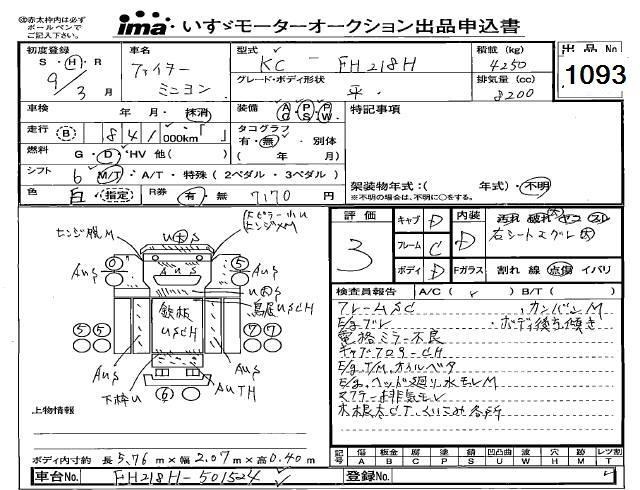 ㊟赤太枠内は必ず
ボールペンで
ご記入下さい。
ima いすゞモーターオークション出品申込書
初度登録 車名 型式 積載 (kg) 出品No
S・H・R ファイター KC - FH218H 4250
9/3 月 ミニヨン グレード・ボディ形状 排気量 (cc) 1093
平. 8200
車検 年 月・抹消 装備 AC PS PW 特記事項
走行 B 841 000km・「 」 タコグラフ
有・無・別体
燃料 G・D・HV 他( ) ( 年 月)
シフト 6 M/T・A/T・特殊(2ペダル・3ペダル)
架装物年式:( 年式)・不明
色 白・指定 R券 有・無 7170 円 ※不明の場合は、不明に○をする。
評価 キャブ D 内装
3 フレーム C D 右シートスグレ大
ボディ D Fガラス 割れ 線 点傷 イバリ
検査員報告 A/C( ✓ ) B/T( )
フレームSC ・カンバンM
E/gブレ ・ボディ後ろ傾き
電格ミラー不良
キャブフロアーCH
E/g,T/M,オイルベタ
E/g,ヘッド廻り水モレM
マフラー排気モレ
ヒンジ腐M
U大S
AUS
鉄板
USCH
鳥居USCH
下枠U
AUTH
0 5
5 5 7 7
6
上物情報
ボディ内寸約 長 5.76 m×幅 2.07 m×高 0.40 m
記号 傷 板金 腐 塗 錆 凹凸曲 波 穴 跡 レツ割
A B C P S U W H M T
車台No. FH218H-501524 登録No.